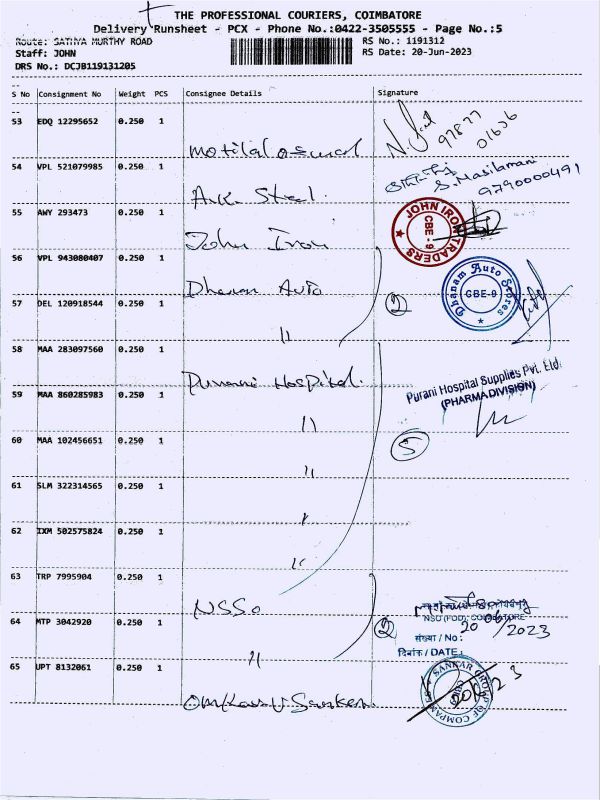 THE PROFESSIONAL COURIERS, COIMBATORE
Delivery Runsheet - PCX - Phone No.:0422-3505555 - Page No.:5
Route: SATHYA MURTHY ROAD
RS No.: 1191312
Staff: JOHN
RS Date: 20-Jun-2023
DRS No.: DCJB119131205
S No Consignment No Weight PCS Consignee Details Signature
53 EDQ 12295652 0.250 1
motilal oswal
97877
01606
54 VPL 521079985 0.250 1
A.K. Steel.
S. Masilamani
9790000491
55 AWY 293473 0.250 1
John Iron
JOHN IRON TRADERS
CBE - 9
56 VPL 943080407 0.250 1
Dhanam Auto
Dhanam Auto Stores
CBE-9
57 DEL 120918544 0.250 1
"
2
58 MAA 283097560 0.250 1
Purani Hospital.
Purani Hospital Supplies Pvt. Ltd
(PHARMA DIVISION)
59 MAA 860285983 0.250 1
"
60 MAA 102456651 0.250 1
"
5
61 SLM 322314565 0.250 1
"
62 IXM 502575824 0.250 1
"
63 TRP 7995904 0.250 1
NSSO
NSO (FOD), COIMBATORE
64 MTP 3042920 0.250 1
"
2
20/06/2023
संख्या / No :
दिनांक / DATE :
65 UPT 8132061 0.250 1
SANKAR GROUP OF COMPANIES